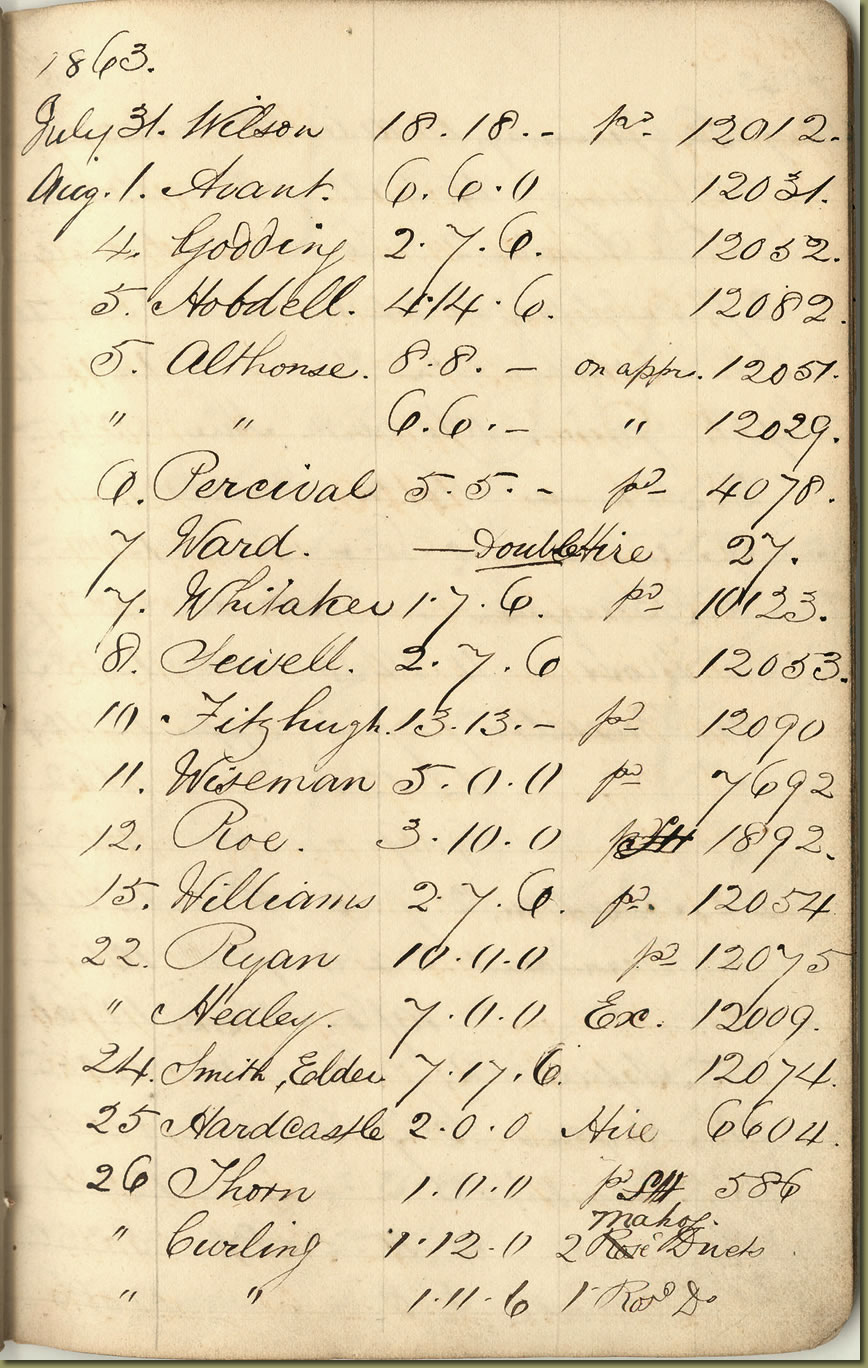 1863.
July 31. Wilson 18. 18. - pd 12012.
Aug. 1. Avant. 6. 6. 0 12031.
4. Godding 2. 7. 6. 12052.
5. Hobdell. 4. 14. 6. 12082.
5. Althonse. 8. 8. - on appr. 12051.
" " 6. 6. - " 12029.
6. Percival 5. 5. - pd 4078.
7 Ward. — Double Hire 27.
7. Whitaker 1. 7. 6. pd 10123.
8. Sewell. 2. 7. 6 12053.
10. Fitzhugh. 13. 13. - pd 12090
11. Wiseman 5. 0. 0 pd 7692
12. Roe. 3. 10. 0 1892.
15. Williams 2. 7. 6. pd. 12054
22. Ryan 10. 0. 0 pd 12075
" Healey. 7. 0. 0 Ex. 12009.
24. Smith, Elder 7. 17. 6. 12074.
25 Hardcastle 2. 0. 0 Hire 6604.
26 Thorn 1. 0. 0 pd SH 586
mahog.
" Curling 1. 12. 0 2 Rose Duets.
" " 1. 11. 6 1 Rosd Do